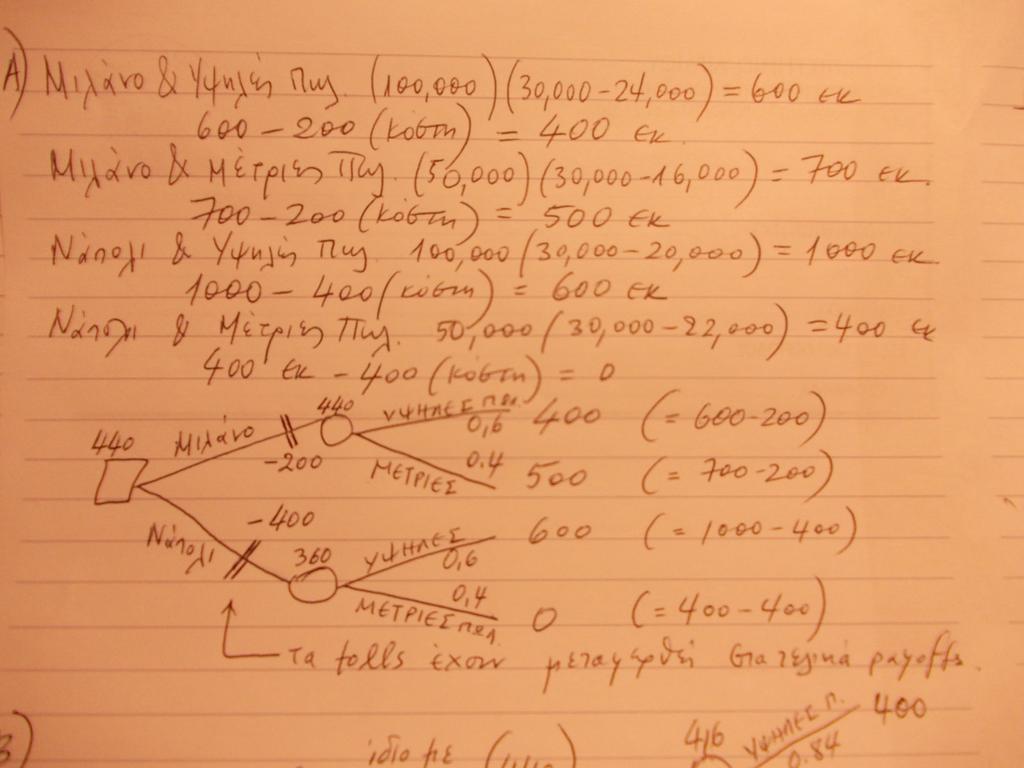 A) Μιλάνο & Υψηλές Πωλ. (100,000)(30,000-24,000) = 600 εκ
600 - 200 (κόστη) = 400 εκ
Μιλάνο & Μέτριες Πωλ. (50,000)(30,000-16,000) = 700 εκ.
700-200 (κόστη) = 500 εκ
Νάπολι & Υψηλές Πωλ. 100,000 (30,000-20,000) = 1000 εκ.
1000 - 400 (κόστη) = 600 εκ
Νάπολι & Μέτριες Πωλ. 50,000 (30,000-22,000) = 400 εκ
400 εκ - 400 (κόστη) = 0
440 Μιλάνο -200 440 ΥΨΗΛΕΣ ΠΩΛ. 0,6 400 (= 600-200)
ΜΕΤΡΙΕΣ 0.4 500 (= 700-200)
Νάπολι -400 360 ΥΨΗΛΕΣ 0,6 600 (= 1000-400)
ΜΕΤΡΙΕΣ ΠΩΛ. 0,4 0 (= 400-400)
τα tolls έχουν μεταφερθεί στα τελικά payoffs.
416 ΥΨΗΛΕΣ Π. 0.84 400
B) ίδιο με